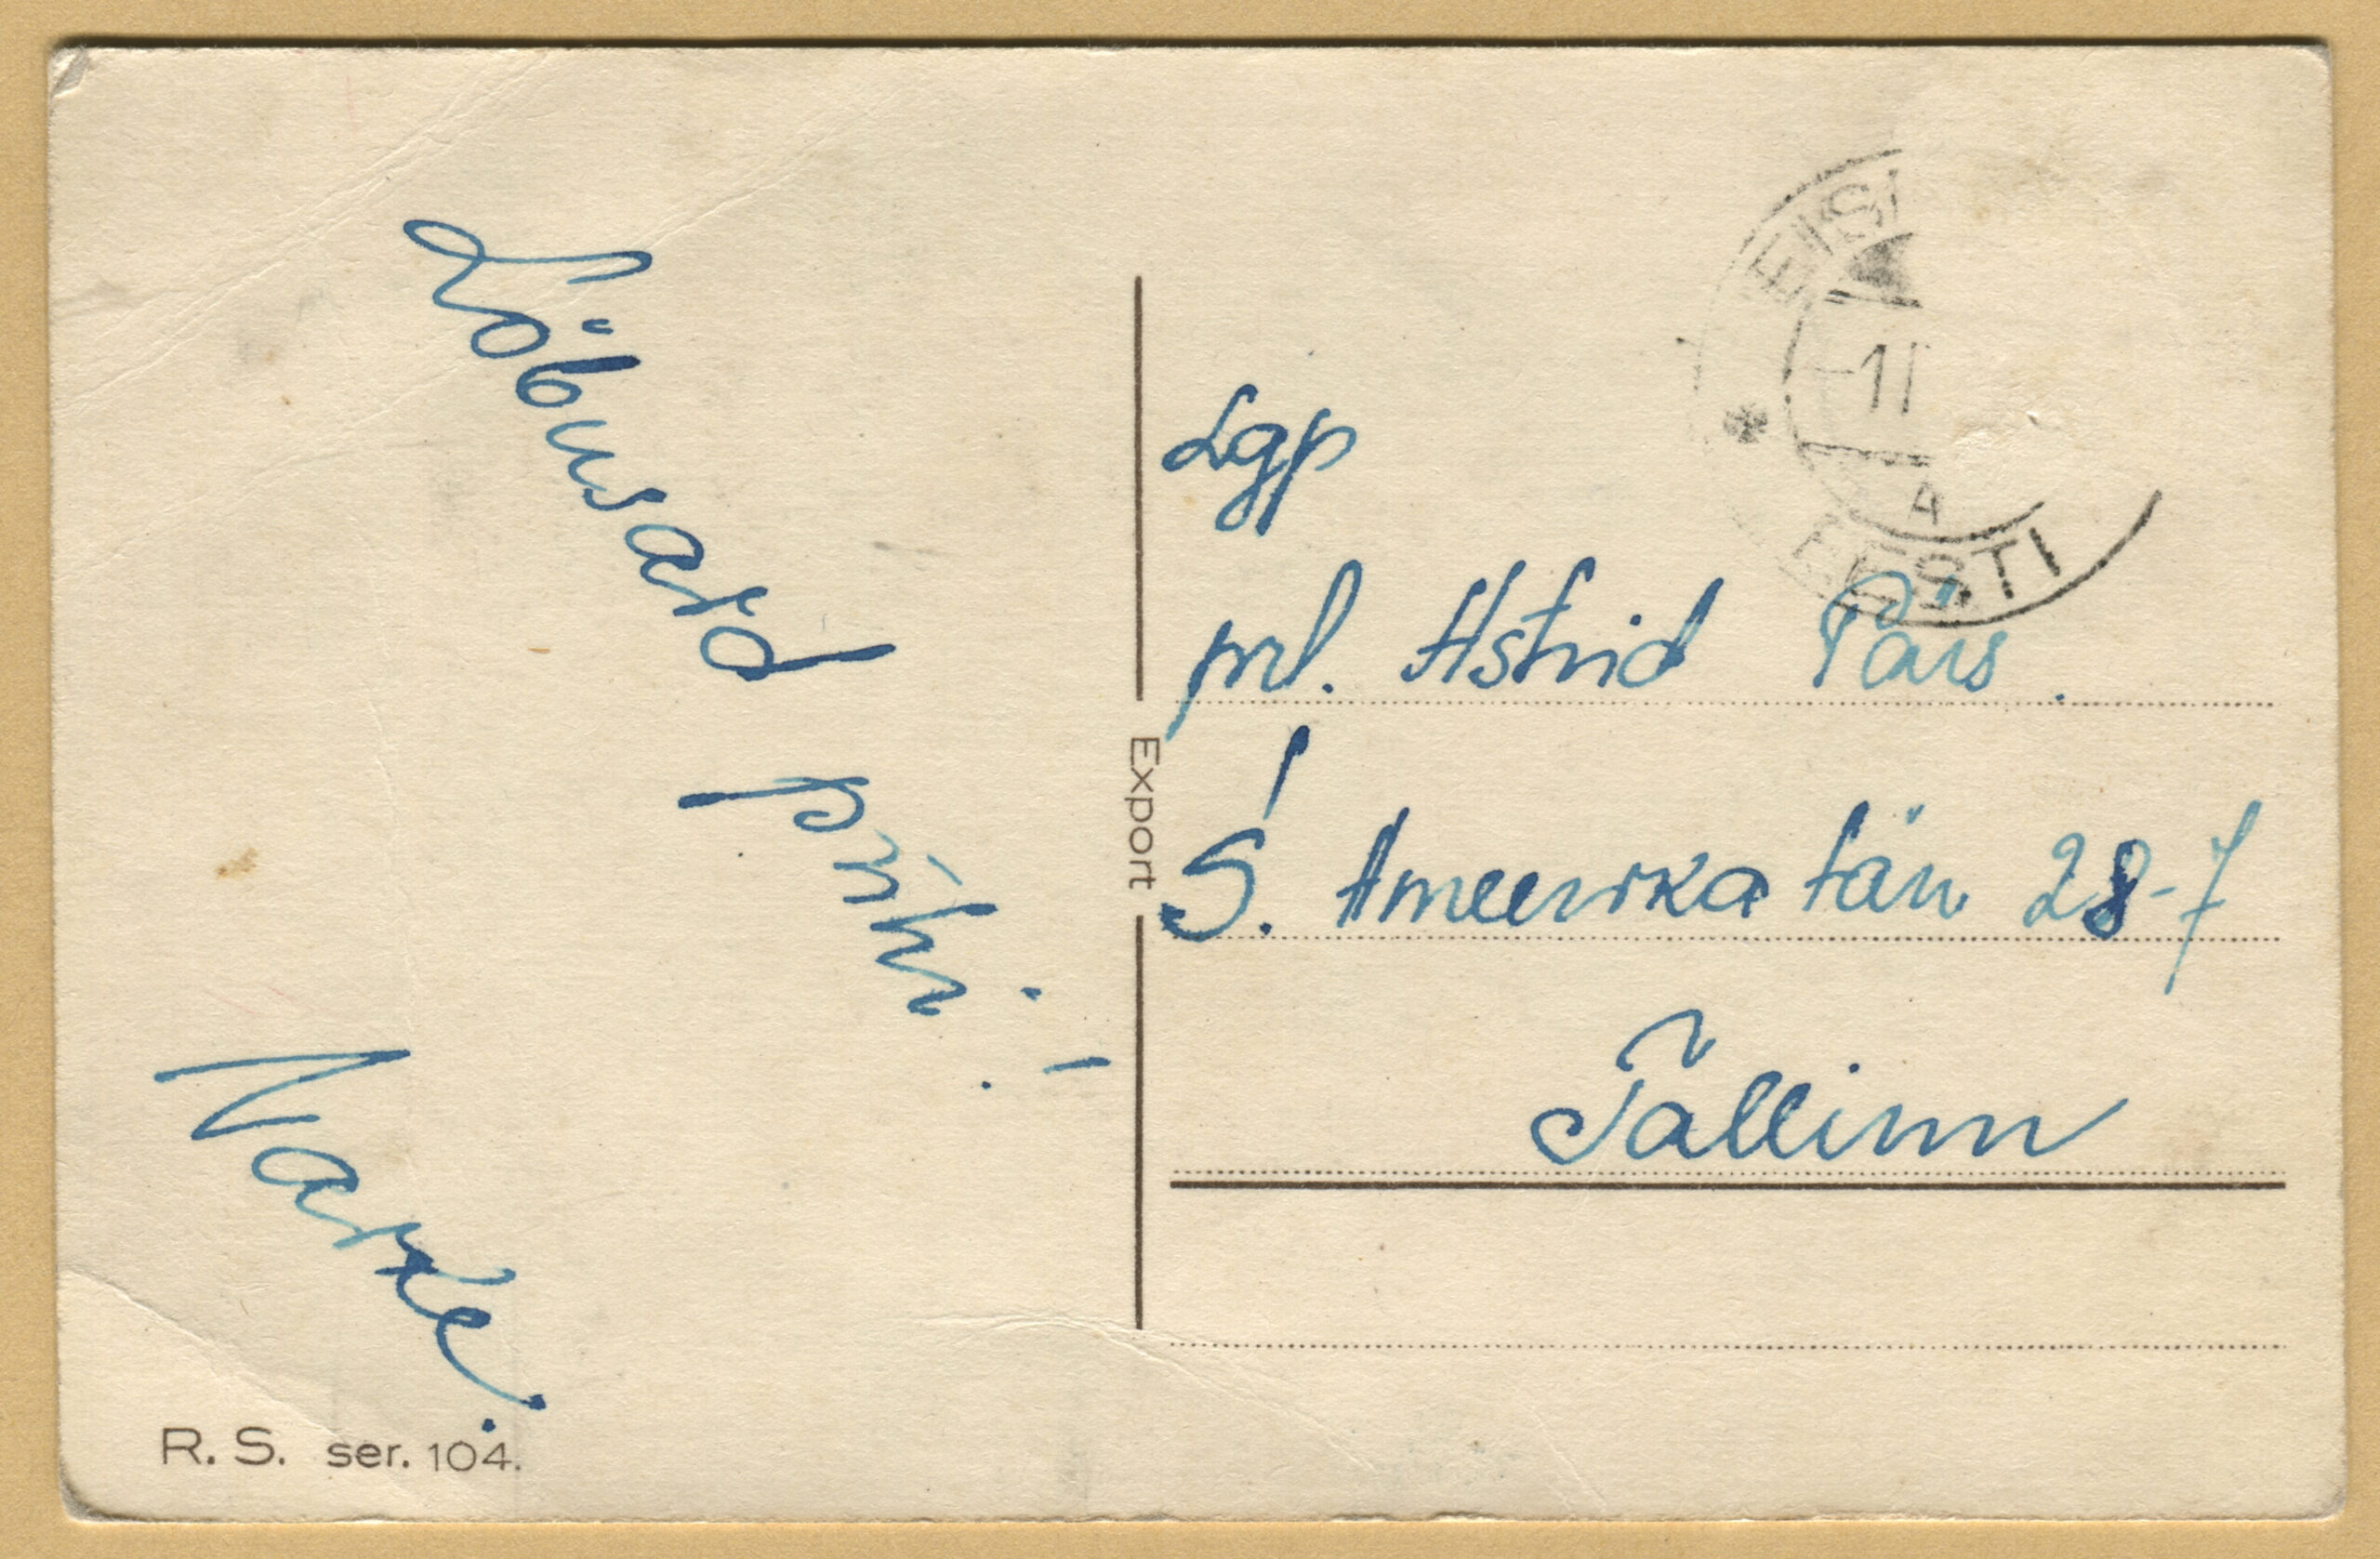 Lõbusaid pühi!
Narze.
R. S. ser. 104.
Export
EIS
-1
4
EESTI
Lgp
prl. Astrid Pärs.
S. Ameerika tän 28-7
Tallinn